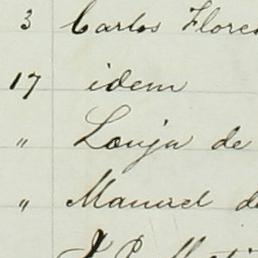 3 Carlos Flores
17 idem
" Louja de
" Manuel d